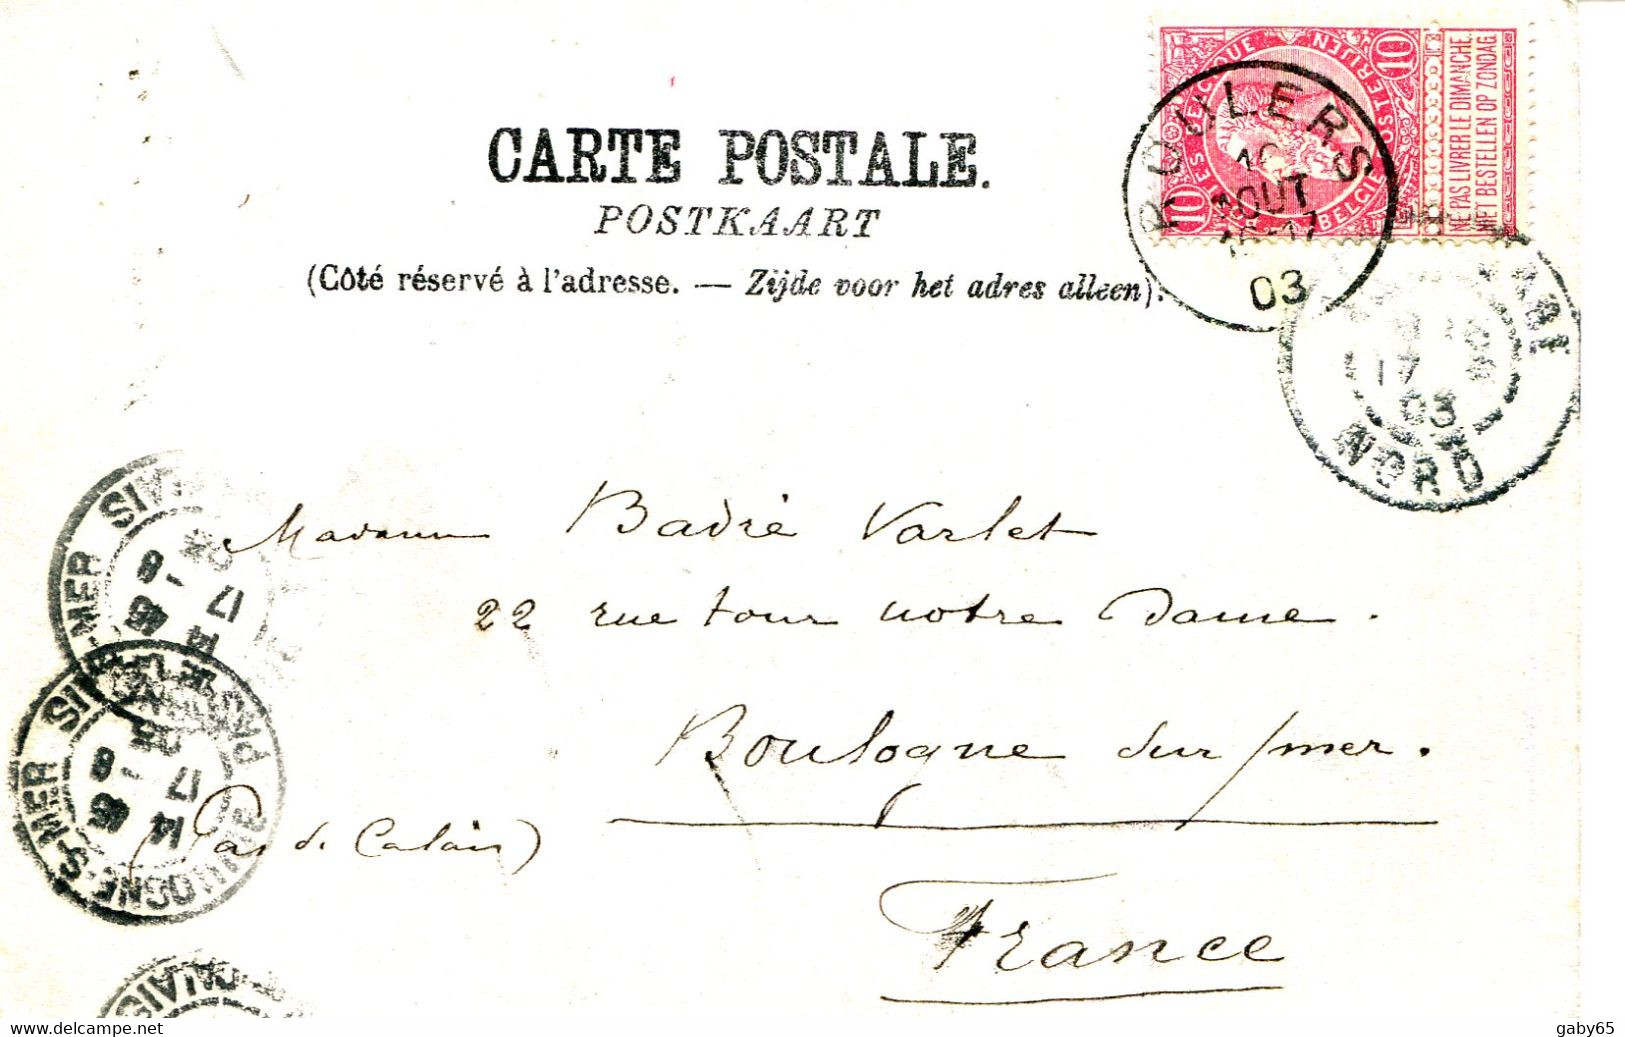 CARTE POSTALE.
POSTKAART
(Côté réservé à l'adresse. — Zijde voor het adres alleen).
POSTERIJEN
BELGIQUE
BELGIË
10
10
NE PAS LIVRER LE DIMANCHE.
NIET BESTELLEN OP ZONDAG.
ROULERS
AOUT
03
17
03
NORD
Madame Badré Varlet
22 rue tour notre Dame.
Boulogne sur/mer.
(Pas de Calais)
France
-MER
14
17
8
BOULOGNE-S-MER
14 45
17
8
CALAIS
www.delcampe.net
gaby65